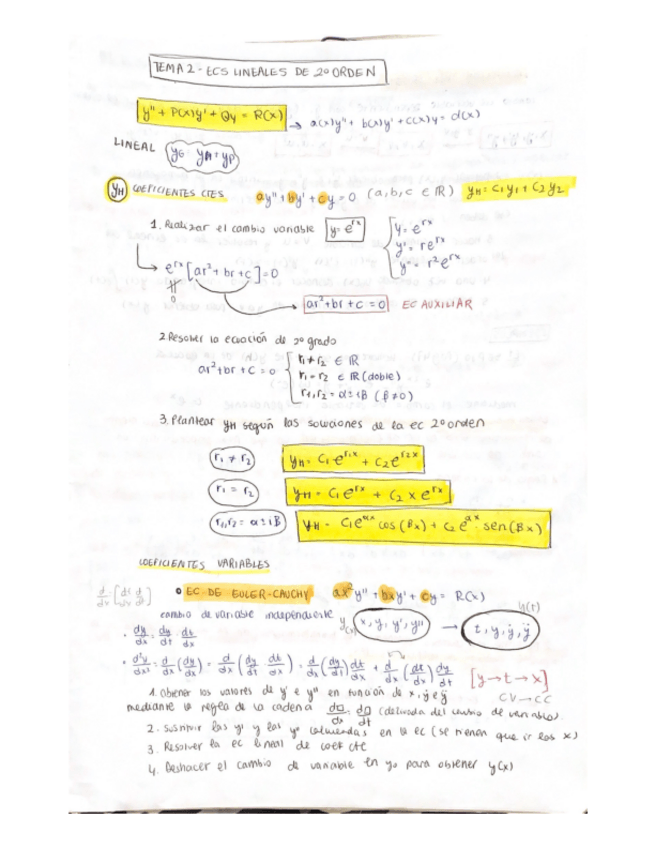 TEMA 2 - ECS LINEALES DE 2º ORDEN
y'' + P(x)y' + Qy = R(x) → a(x)y'' + b(x)y' + c(x)y = d(x)
LINEAL yG = yH + yP
yH COEFICIENTES CTES ay'' + by' + cy = 0 (a,b,c ∈ ℝ) yH = C1y1 + C2y2
1. Realizar el cambio variable y = e^rx
y = e^rx
y' = re^rx
y'' = r²e^rx
→ e^rx [ar² + br + c] = 0
0
ar² + br + c = 0 EC AUXILIAR
2. Resolver la ecuación de 2º grado
ar² + br + c = 0
r1 ≠ r2 ∈ ℝ
r1 = r2 ∈ ℝ (doble)
r1, r2 = α ± iβ (β ≠ 0)
3. Plantear yH según las soluciones de la ec 2º orden
r1 ≠ r2 yH = C1e^r1x + C2e^r2x
r1 = r2 yH = C1e^rx + C2 x e^rx
r1, r2 = α ± iβ yH = C1e^αx cos(βx) + C2 e^αx · sen(βx)
COEFICIENTES VARIABLES
• EC. DE EULER-CAUCHY ax²y'' + bxy' + cy = R(x)
cambio de variable independiente y(x) x, y, y', y'' → t, y, ẏ, ÿ y(t)
· dy/dx = dy/dt · dt/dx
· d²y/dx² = d/dx (dy/dx) = d/dx (dy/dt · dt/dx) = d/dx (dy/dt) dt/dx + d/dx (dt/dx) dy/dt [y→t→x]
CV→CC
1. Obtener los valores de y' e y'' en función de x, ẏ e ÿ
mediante la regla de la cadena d□/dx = d□/dt (derivada del cambio de variable).
2. Sustituir las y' y las y'' calculadas en la ec (se tienen que ir las x)
3. Resolver la ec lineal de coef cte
4. Deshacer el cambio de variable en yG para obtener y(x)